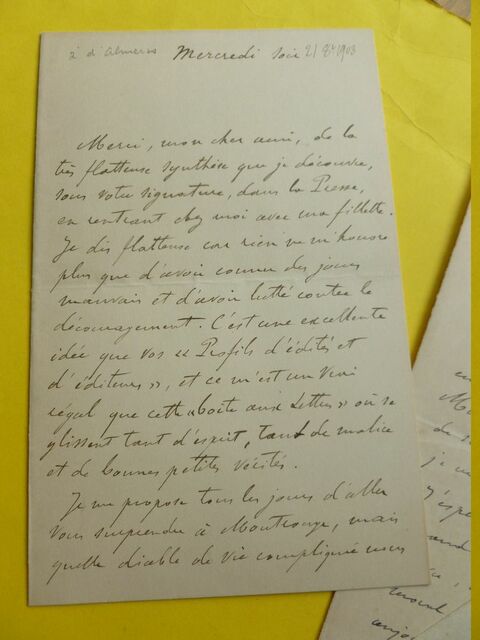 à d'Almeras
Mercredi soir 21 8bre 1903
Merci, mon cher ami, de la
très flatteuse synthèse que je découvre,
sous votre signature, dans la Presse,
en rentrant chez moi avec ma fillette.
Je dis flatteuse car rien ne m'honore
plus que d'avoir connu des jours
mauvais et d'avoir lutté contre le
découragement. C'est une excellente
idée que vos « Profils d'édités et
d'éditeurs », et ce m'est un vrai
régal que cette « boîte aux Lettres » où se
glissent tant d'esprit, tant de malice
et de bonnes petites vérités.
Je me propose tous les jours d'aller
vous surprendre à Montrouge, mais
quelle diable de vie compliquée nous